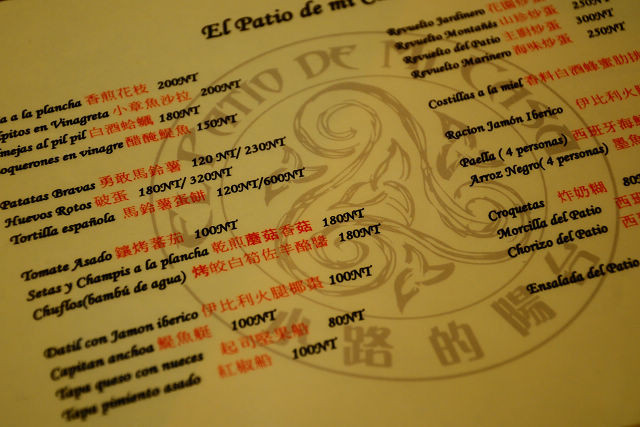 El Patio de mi
a la plancha 香煎花枝 200NT
pitos en Vinagreta 小章魚沙拉 200NT
mejas al pil pil 白酒蛤蠣 180NT
oquerones en vinagre 醋醃鯷魚 150NT
Patatas Bravas 勇敢馬鈴薯 120 NT/ 230NT
Huevos Rotos 破蛋 180NT/ 320NT
Tortilla española 馬鈴薯蛋餅 120NT/600NT
Tomate Asado 鑲烤蕃茄 100NT
Setas y Champis a la plancha 乾煎蘑菇香菇 180NT
Chuflos(bambú de agua) 烤皎白筍佐羊酪醬 180NT
Datil con Jamon iberico 伊比利火腿椰棗 100NT
Capitan anchoa 鯷魚艇 100NT
Tapa queso con nueces 起司堅果船 80NT
Tapa pimiento asado 紅椒船 100NT
Revuelto Jardinero 花園炒蛋 250NT
Revuelto Montañés 山珍炒蛋
Revuelto del Patio 主廚炒蛋 300NT
Revuelto Marinero 海味炒蛋 250NT
Costillas a la miel 香料白酒蜂蜜肋排
Racion Jamón Iberico 伊比利火腿
Paella ( 4 personas) 西班牙海鮮
Arroz Negro( 4 personas) 墨魚
Croquetas 炸奶糊 80
Morcilla del Patio 西班
Chorizo del Patio 西班
Ensalada del Patio
PATIO DE
路的陽